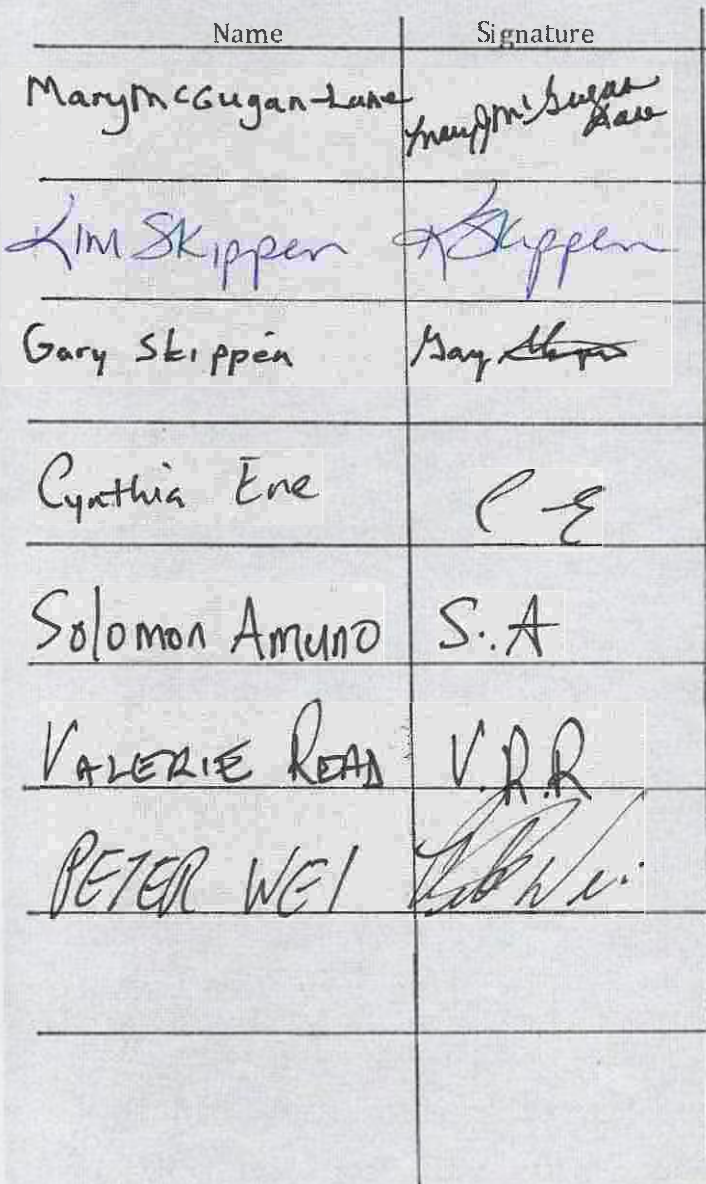 Name Signature
Mary McGugan-Lane Mary J McGugan Lane
Kim Skippen K Skippen
Gary Skippen Gary
Cynthia Ene C E
Solomon Amuno S.A
VALERIE READ V.R.R
PETER WEI Wei